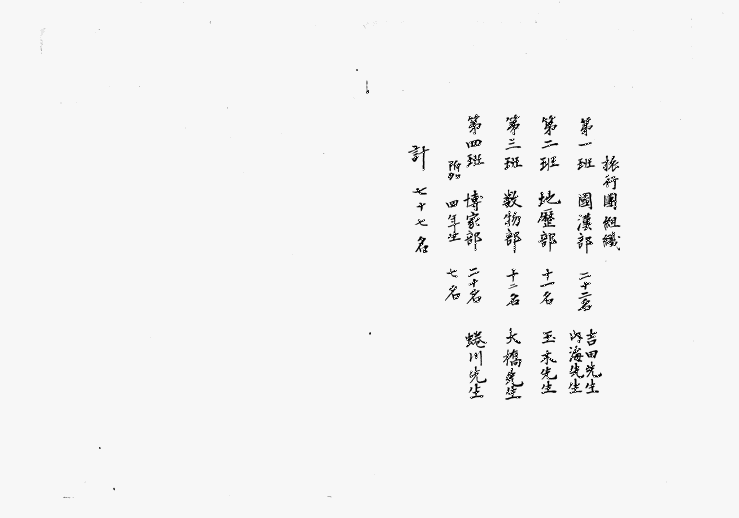 旅行團組織
第一班 國漢部 二十二名 吉田先生
内海先生
第二班 地歷部 十一名 玉木先生
第三班 数物部 十二名 大橋先生
第四班 博家部 二十名 蜷川先生
四年生 七名
計 七十七名